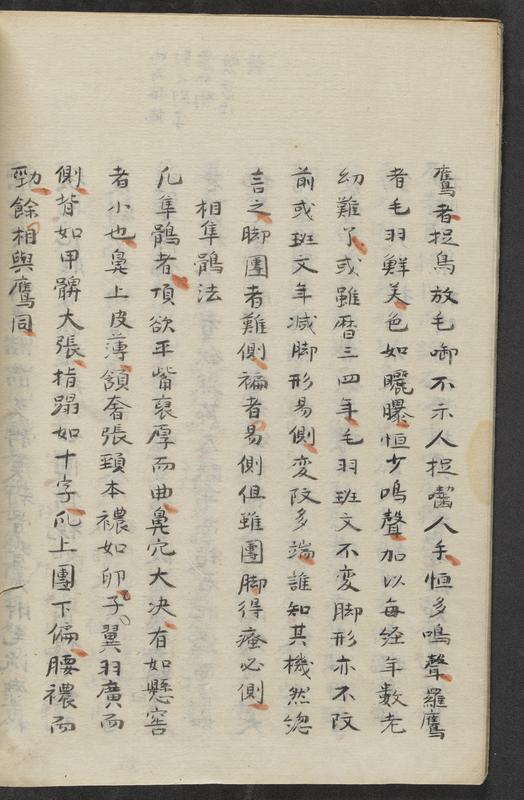 鷹者捉鳥放毛啣不示人捉齧人手恒多鳴聲羅鷹
者毛羽鮮美色如曬曝恒少鳴聲加以每経年数老
幼難了或雖暦三四年毛羽班文不変脚形亦不改
前或班文年减脚形易側変改多端誰知其機然
言之脚團者難側褊者易側但雖團脚得瘂必側
相隼鶻法
凡隼鶻者頂欲平觜裹厚而曲鼻穴大决有如懸窖
者小也鼻上皮薄頷奢張頸本襛如卵子翼羽廣而
側背如甲髆大張指蹋如十字爪上團下偏腰襛而
勁餘相與鷹同